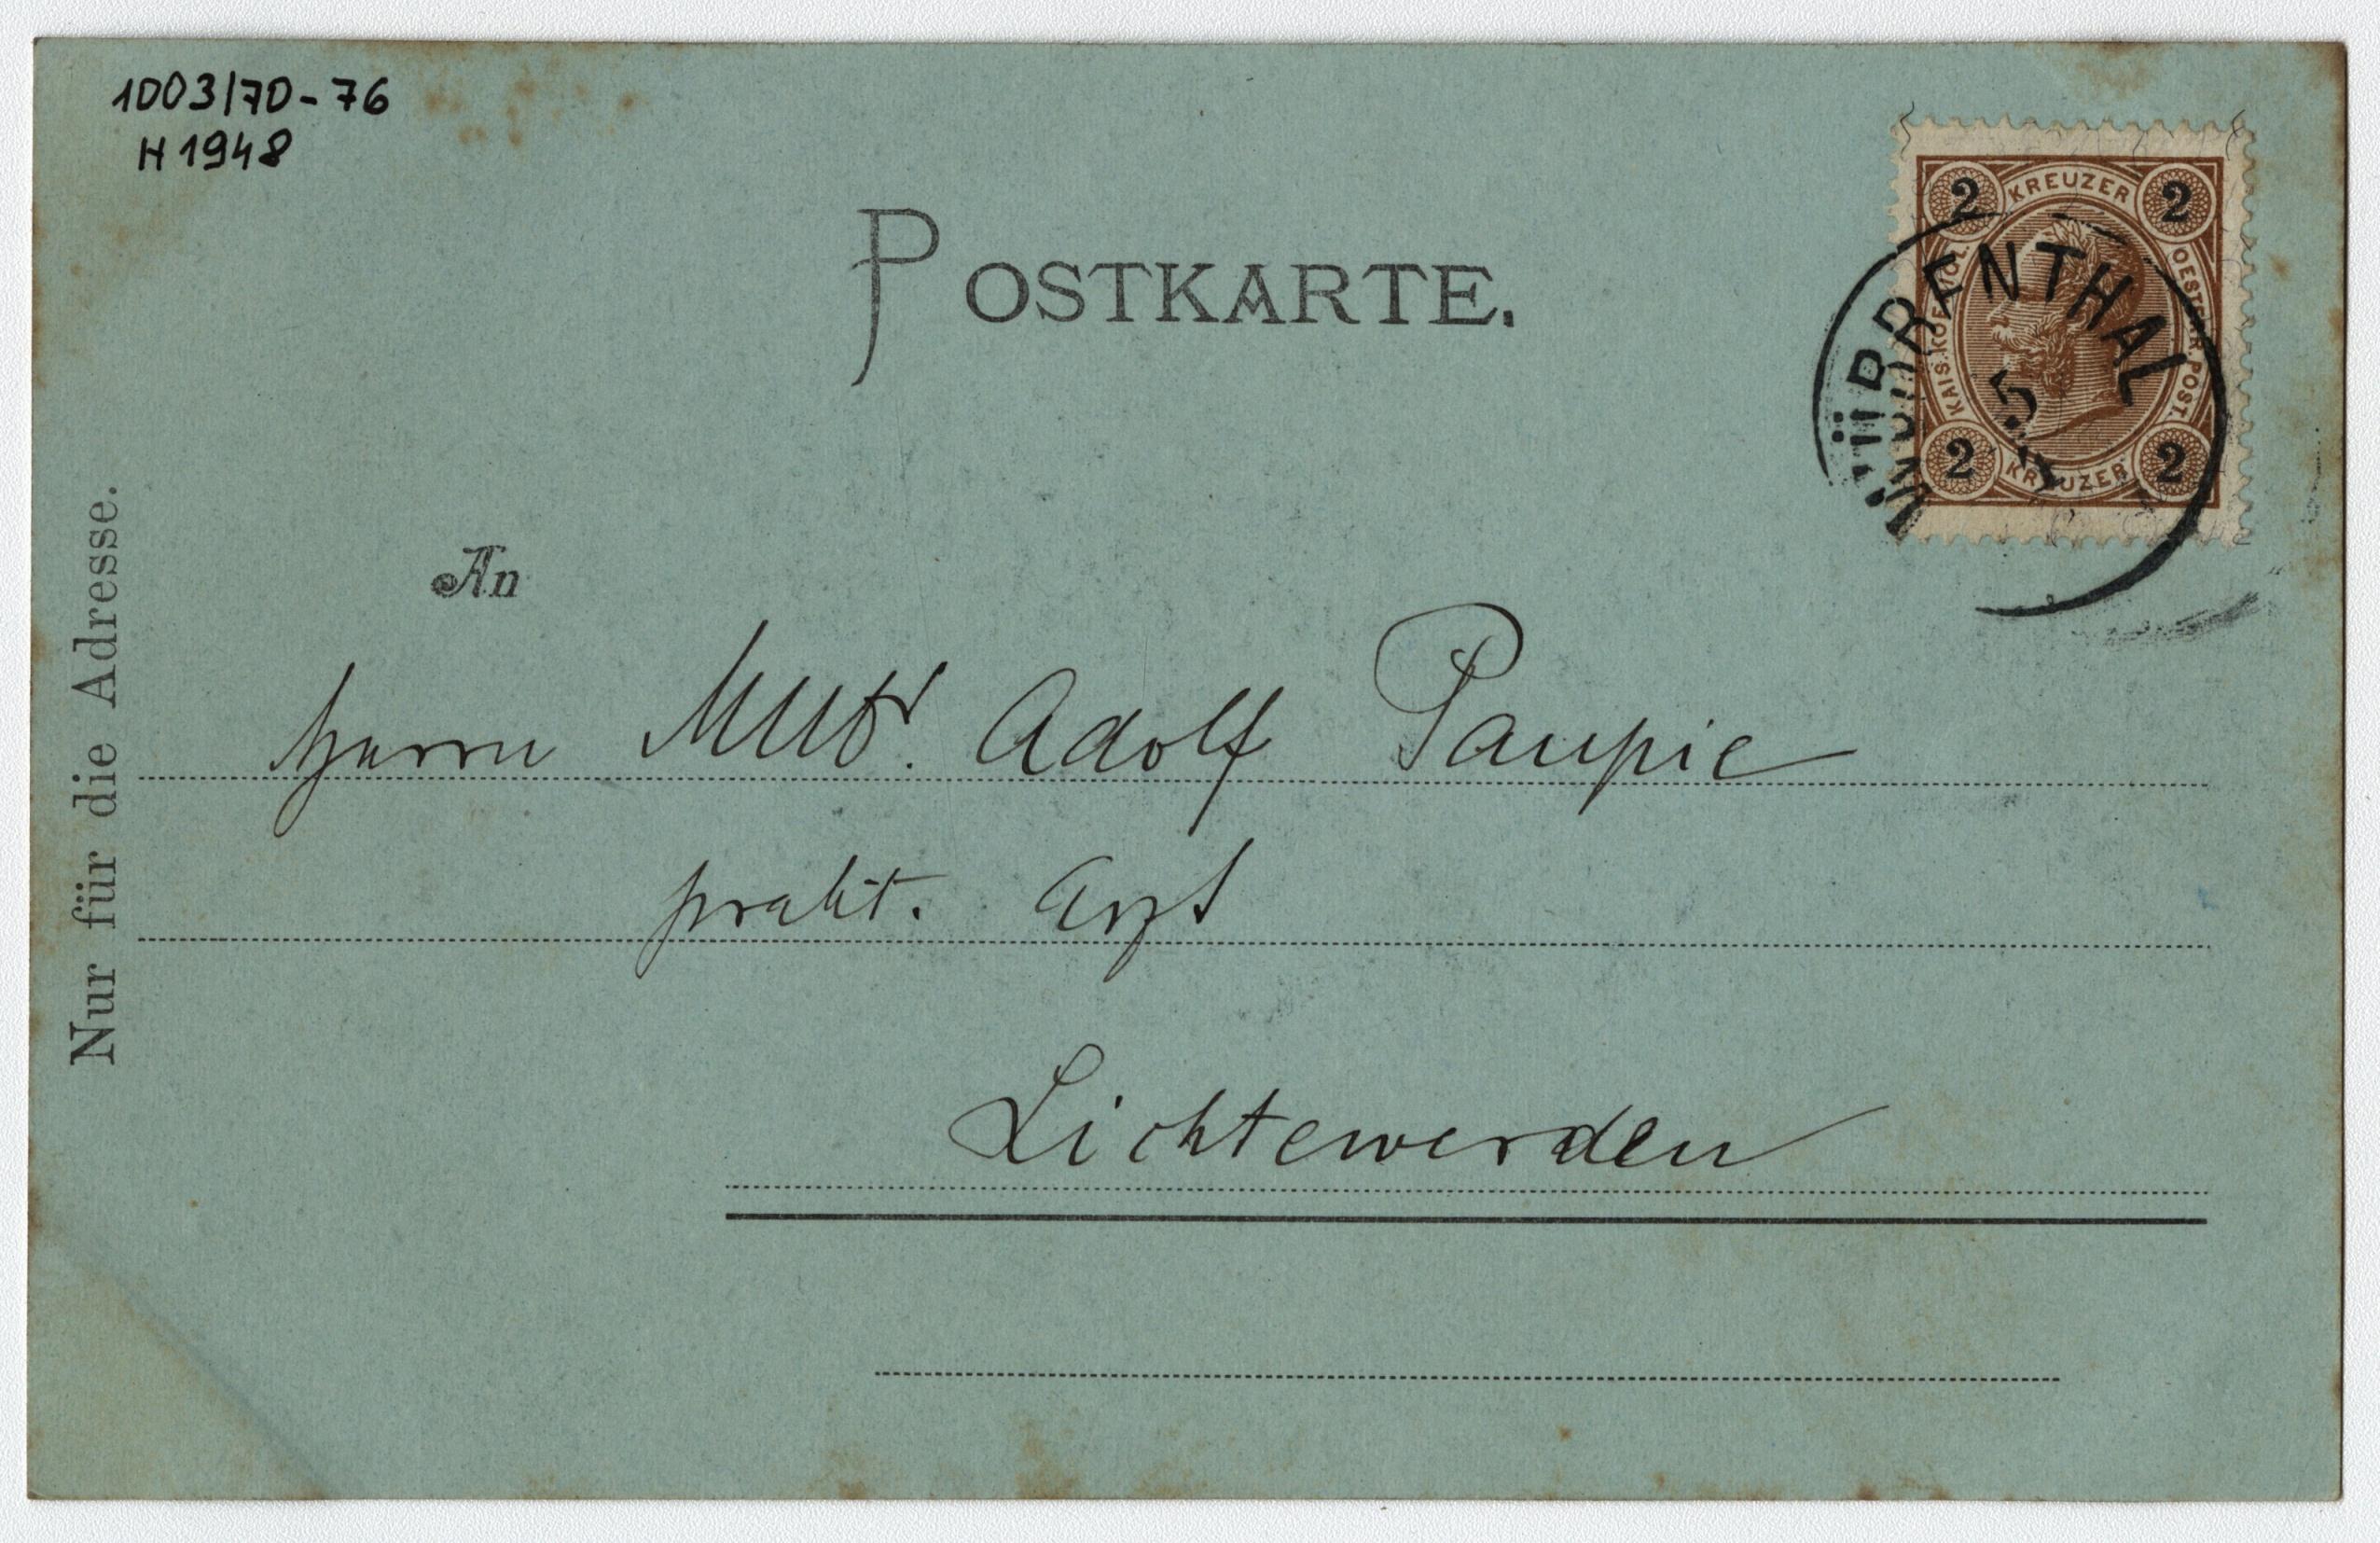 1003/70-76
H 1948
POSTKARTE.
2 KREUZER 2
KAIS. KOEN.
OESTERR. POST.
2 KREUZER 2
WÜRBENTHAL
5
Nur für die Adresse.
An
Herrn MUDr. Adolf Paupie
prakt. Arzt
Lichtewerden